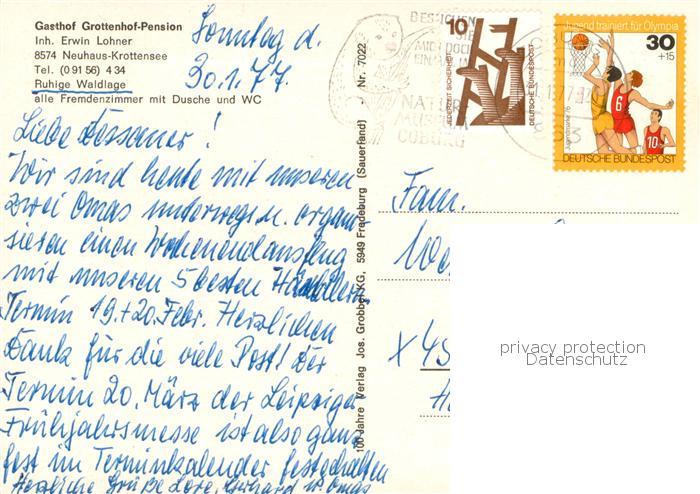 Gasthof Grottenhof-Pension
Inh. Erwin Lohner
8574 Neuhaus-Krottensee
Tel. (0 91 56) 4 34
Ruhige Waldlage
alle Fremdenzimmer mit Dusche und WC
Sonntag d.
30.1.77.
Liebe !
Wir sind heute mit unseren
zwei Omas unterwegs u. organi-
sieren einen Wochenendausflug
mit unseren 5 besten Händlern.
Termin 19.+20. Febr. Herzlichen
Dank für die viele Post! Der
Termin 20. März der Leipziger
Frühjahrsmesse ist also ganz
fest im Terminkalender festgehalten
Herzliche Grüße Lore, Gerhard u. Omas
100 Jahre Verlag Jos. Grobbel KG, 5949 Fredeburg (Sauerland) - Nr. 7022
BESUCHEN
SIE
MICH DOCH
EINMAL IM
NATUR
MUSEUM
COBURG
10
JEDERZEIT SICHERHEIT
DEUTSCHE BUNDESPOST
Jugend trainiert für Olympia
30
+15
6
10
Jugendmarke 76
DEUTSCHE BUNDESPOST
Fam.
x 45
privacy protection
Datenschutz